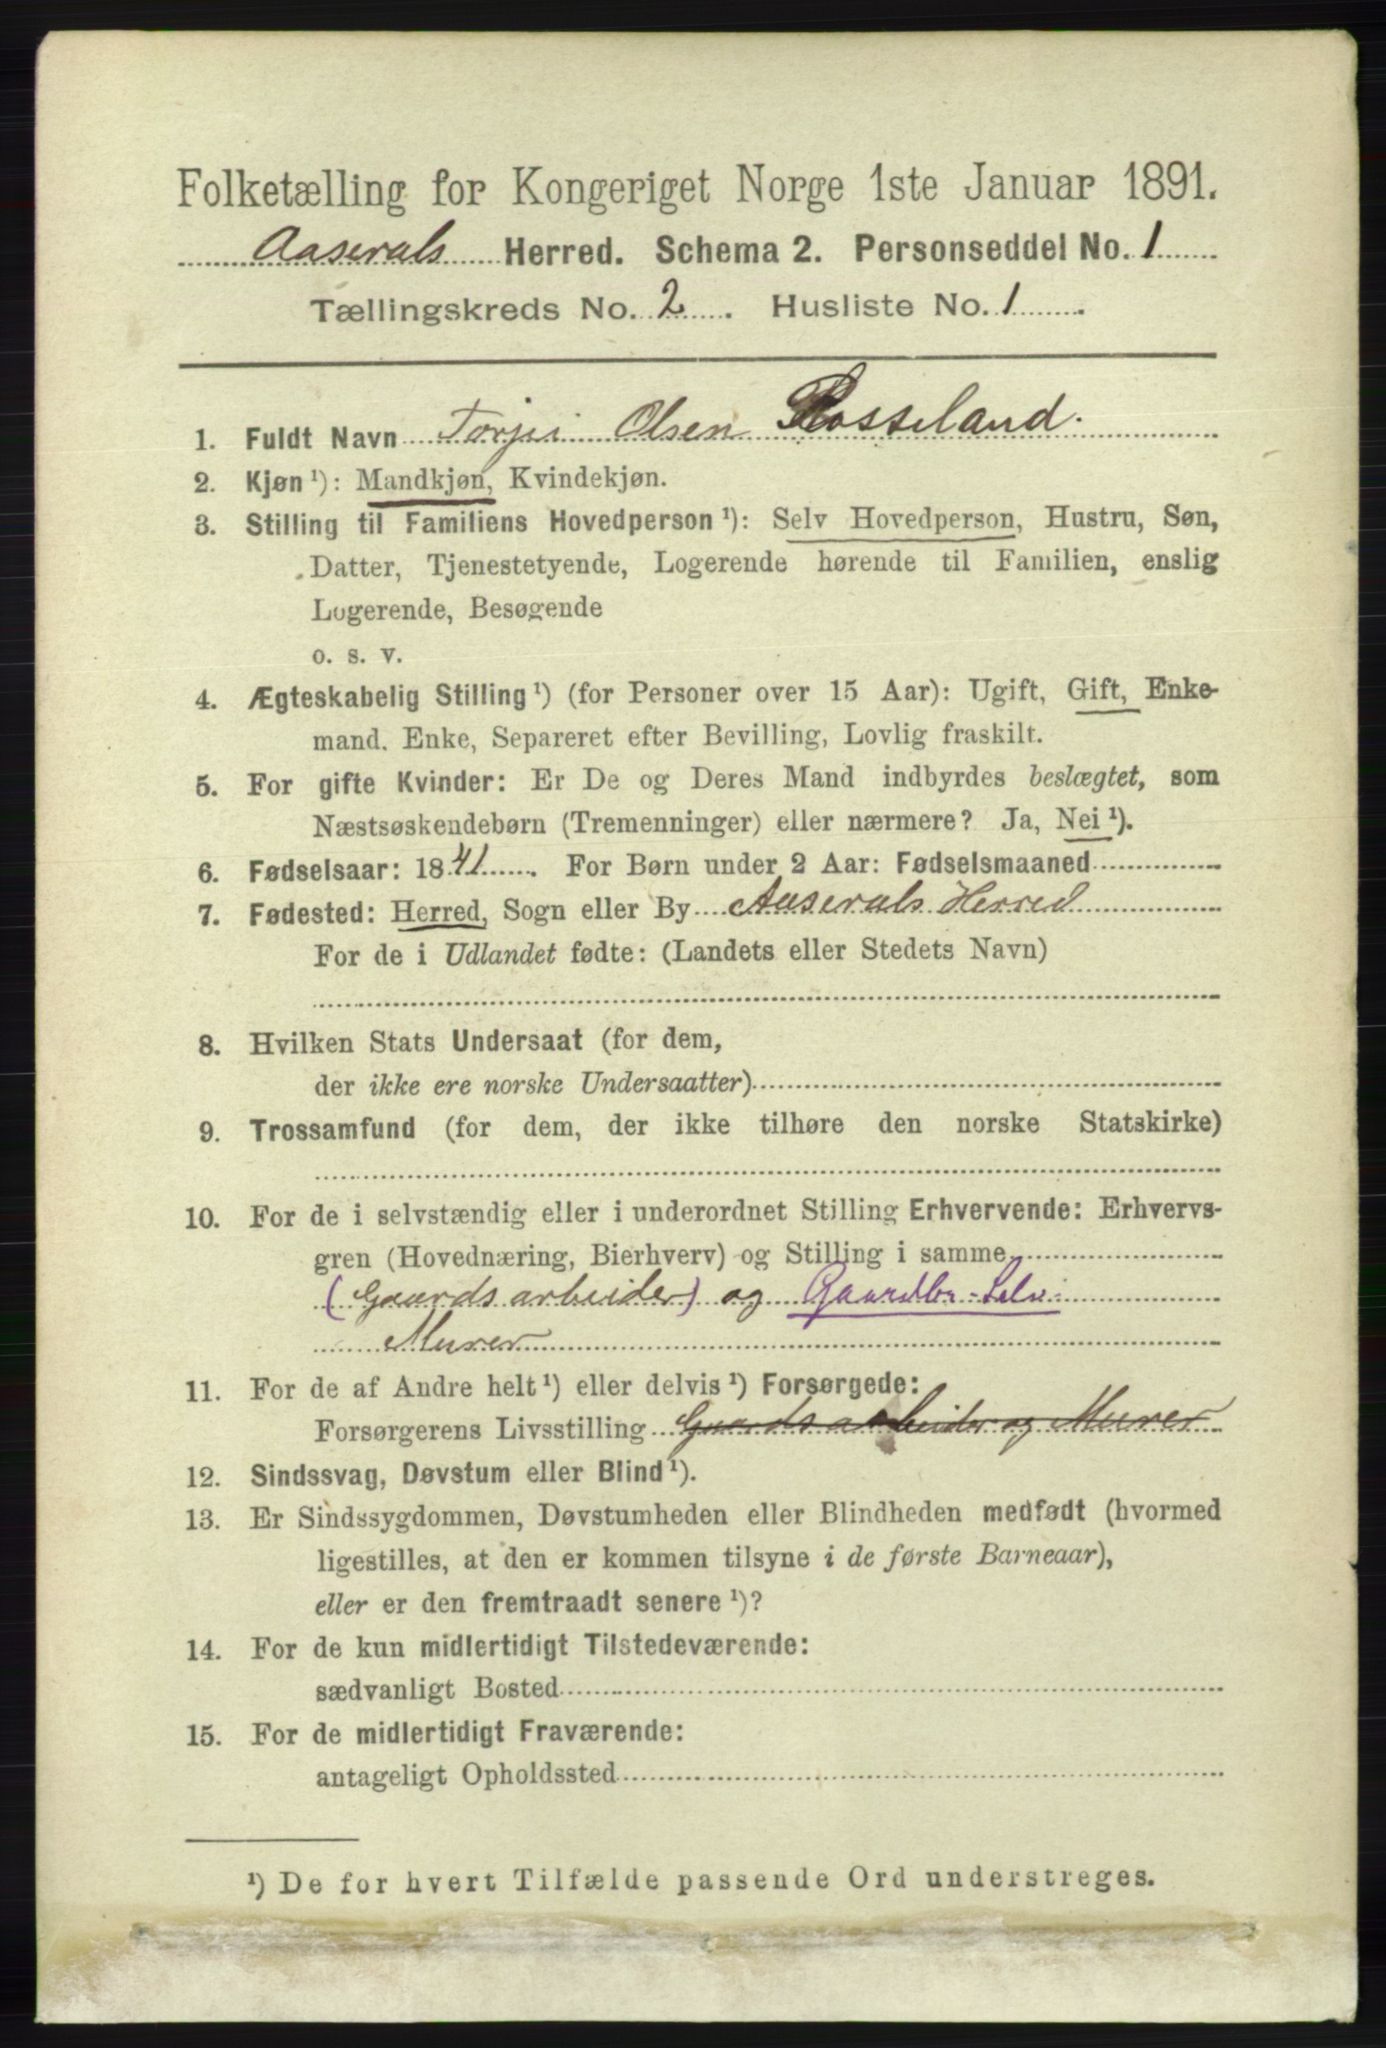 Folketælling for Kongeriget Norge 1ste Januar 1891.
Aaserals Herred. Schema 2. Personseddel No. 1
Tællingskreds No. 2. Husliste No. 1.
1. Fuldt Navn Torjei Olsen Rosseland.
2. Kjøn ¹): Mandkjøn, Kvindekjøn.
3. Stilling til Familiens Hovedperson ¹): Selv Hovedperson, Hustru, Søn,
Datter, Tjenestetyende, Logerende hørende til Familien, enslig
Logerende, Besøgende
o. s. v.
4. Ægteskabelig Stilling ¹) (for Personer over 15 Aar): Ugift, Gift, Enke-
mand. Enke, Separeret efter Bevilling, Lovlig fraskilt.
5. For gifte Kvinder: Er De og Deres Mand indbyrdes beslægtet, som
Næstsøskendebørn (Tremenninger) eller nærmere? Ja, Nei ¹).
6. Fødselsaar: 1841. For Børn under 2 Aar: Fødselsmaaned
7. Fødested: Herred, Sogn eller By Aaserals Herred
For de i Udlandet fødte: (Landets eller Stedets Navn)
8. Hvilken Stats Undersaat (for dem,
der ikke ere norske Undersaatter)
9. Trossamfund (for dem, der ikke tilhøre den norske Statskirke)
10. For de i selvstændig eller i underordnet Stilling Erhvervende: Erhvervs-
gren (Hovednæring, Bierhverv) og Stilling i samme
(Gaardsarbeider) og Gaardbr. Selv
Murer
11. For de af Andre helt ¹) eller delvis ¹) Forsørgede:
Forsørgerens Livsstilling Gaardsarbeider og Murer
12. Sindssvag, Døvstum eller Blind ¹).
13. Er Sindssygdommen, Døvstumheden eller Blindheden medfødt (hvormed
ligestilles, at den er kommen tilsyne i de første Barneaar),
eller er den fremtraadt senere ¹)?
14. For de kun midlertidigt Tilstedeværende:
sædvanligt Bosted
15. For de midlertidigt Fraværende:
antageligt Opholdssted
¹) De for hvert Tilfælde passende Ord understreges.